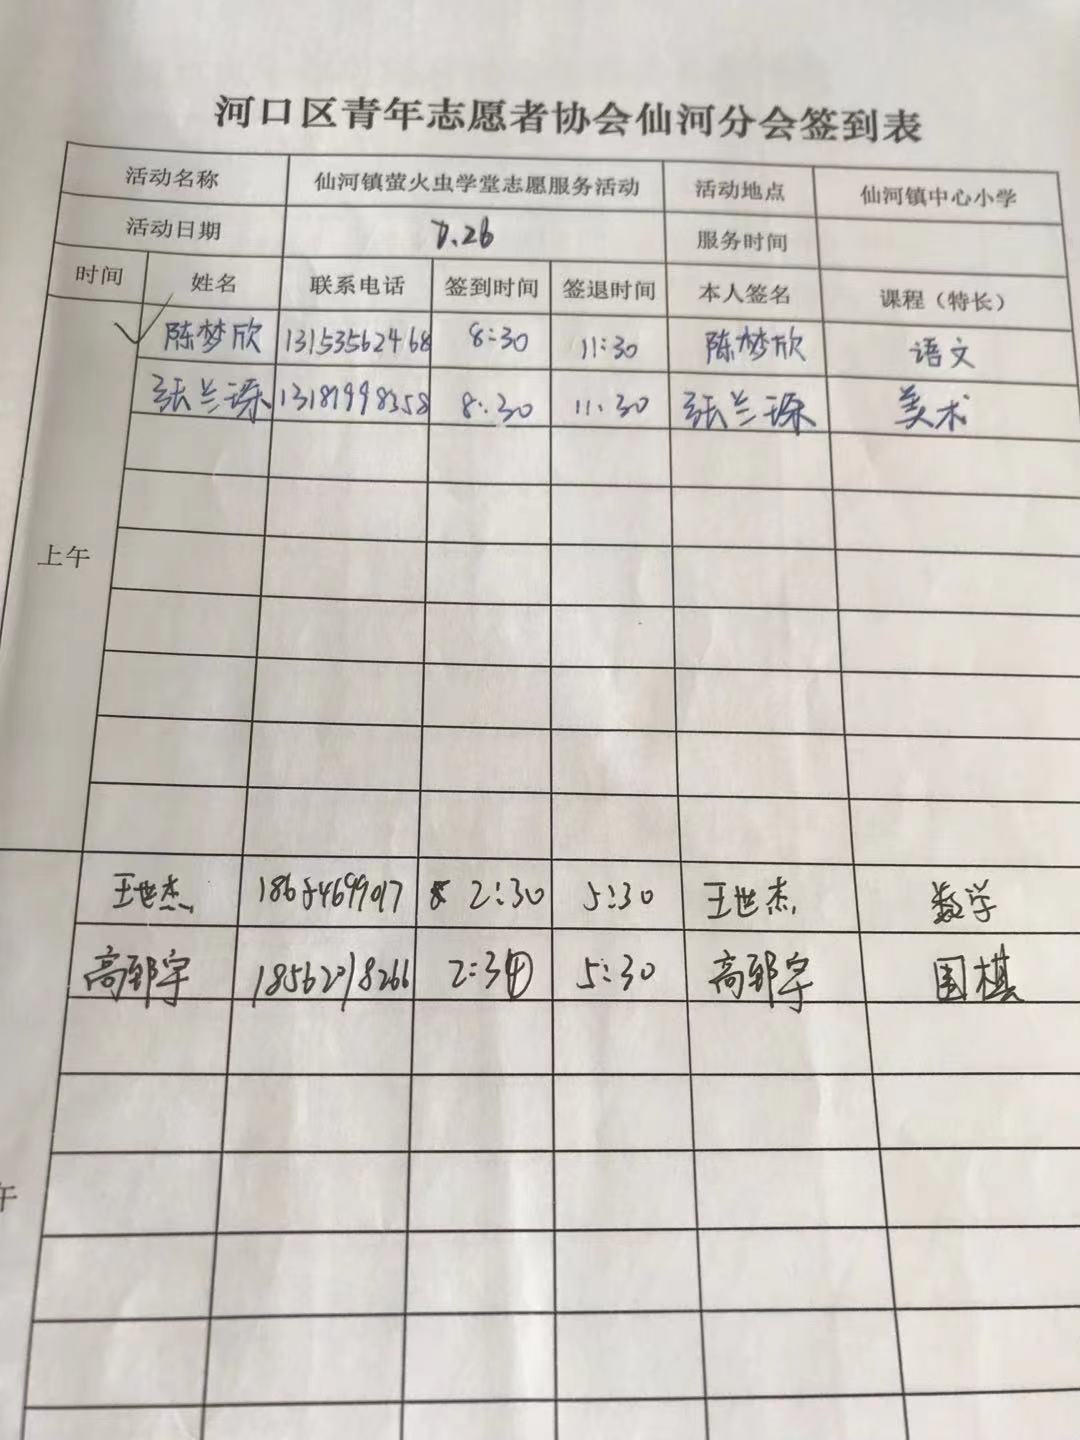 河口区青年志愿者协会仙河分会签到表
活动名称 仙河镇萤火虫学堂志愿服务活动 活动地点 仙河镇中心小学
活动日期 7.26 服务时间
时间 姓名 联系电话 签到时间 签退时间 本人签名 课程（特长）
上午
陈梦欣 13153562468 8:30 11:30 陈梦欣 语文
张兰琛 13181998358 8:30 11:30 张兰琛 美术
午
王世杰 2:30 5:30 王世杰 数学
高郅宇 5:30 高郅宇 围棋